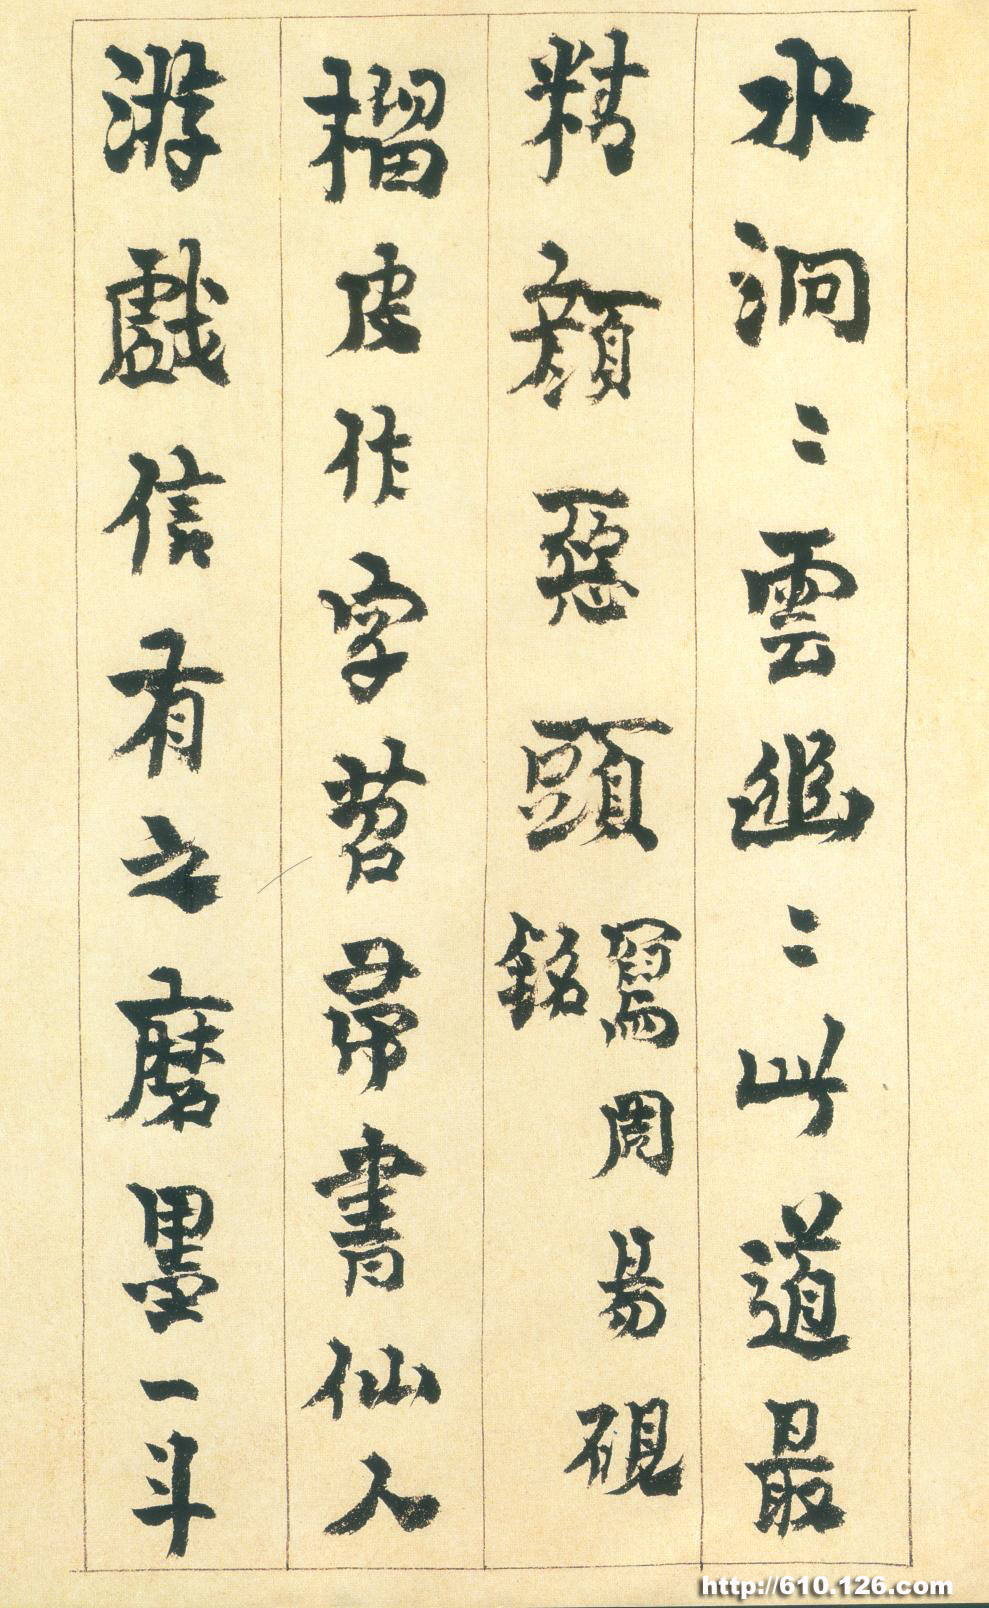 水洞〻雲幽〻此道最
精顏惡頭
寫周易硯
銘
榴皮作字苕帚書仙人
游戲信有之磨墨一斗
http://610.126.com